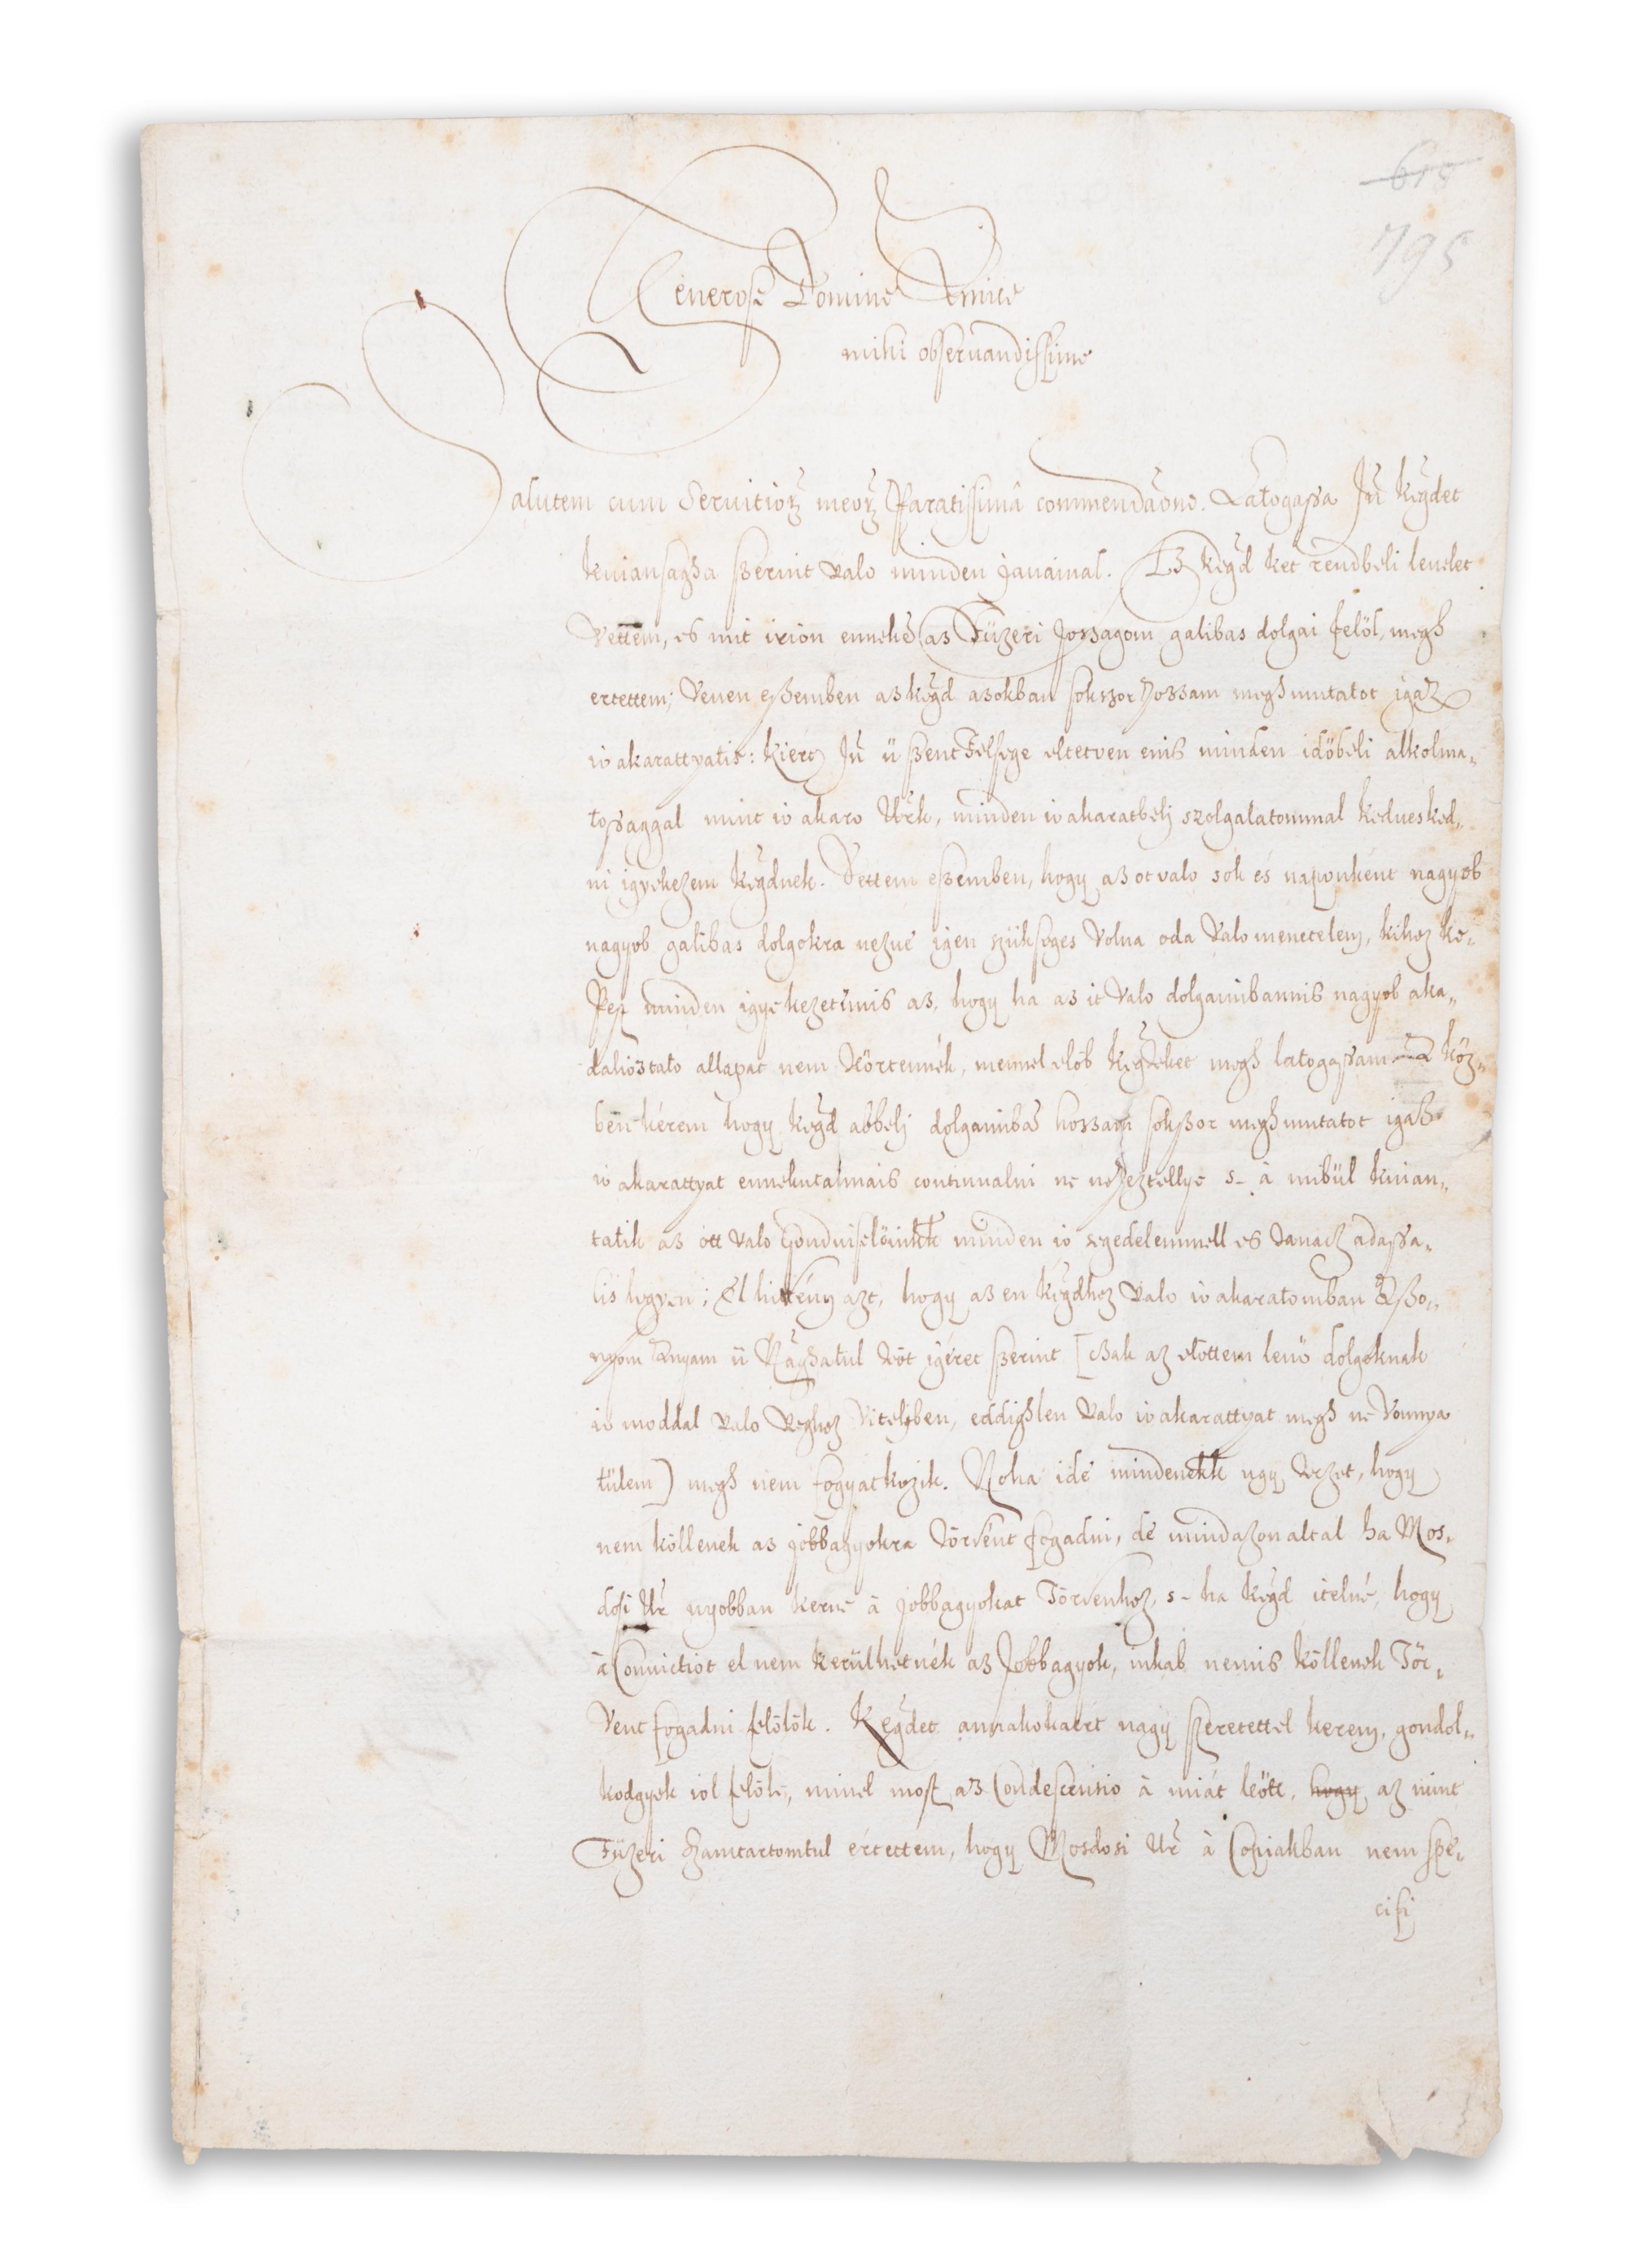 618
795
Generose Domine Amice
mihi obseruandissime
Salutem cum Seruitiorũ meorũ Paratissimâ commendãone. Latogassa Jñ kegdet
kiuansagha szerint valo minden jauaiual. Ez kegd ket rendbeli leuelet
Vettem, es mit irion ennekẽ as Füzeri Joszagom galibas dolgai felöl, megh
ertettem; Venen eszemben az kegd azokban sokszor hozzam meghmutatot igaz
io akarattyatis: kiert Jñ ü szent Felsege eltetven enis minden időbeli alkolma„
tossaggal mint io akaro Vrk, minden io akaratbelj szolgalatommal kedvesked„
ni igyekezem kegdnek. Vettem eszemben, hogy az ot valo sok és naponként nagyob
nagyob galibas dolgokra nezue igen szükseges Volna oda Valo menetelem, kihez ke„
pest minden igyekezetimis az, hogy ha az it Valo dolgaimbannis nagyob aka„
dalioztato allapat nem törtennék, mennel elöb kegteket megh latogassam köz„
ben kérem hogy kegd abbelj dolgaimbã hozzam sokszor meghmutatot igasz
io akarattyat ennekutannais continualni ne neheztellye s- à mibül kiuan„
tatik az ott valo Gonduiselőinkk minden io segedelemmell es tanacz adassa„
lis legyen; El hittẽm azt, hogy az en kegdhez valo io akaratomban Aszo„
nyom Anyam ü Nagsatul töt igéret szerint [czak az elottem leuö dolgoknak
io moddal valo veghez Vitelében, eddighlen valo io akarattyat megh ne Vonnya
tülem) megh nem fogyatkozik. Noha ide mindenekk ugy tezet, hogy
nem köllenek az jobbagyokra törvent fogadni, de mindazonaltal ha Mos„
dosi Vr nyobban kerne à jobbagyokat Törvenhez, s- ha kegd itelne, hogy
à Conuictiot el nem kerülhetnék az Jobbagyok, inkab nemis köllenek Tör„
Vent fogadni felölök. Kegdet annakokaért nagy szeretettel kerem, gondol„
kodgyek iol felölö, miuel most az Condescensio à miat leött, hogy az mint
Füzeri Szamtartomtul értettem, hogy Mosdosi Vr à Copiakban nem spe„
cifi